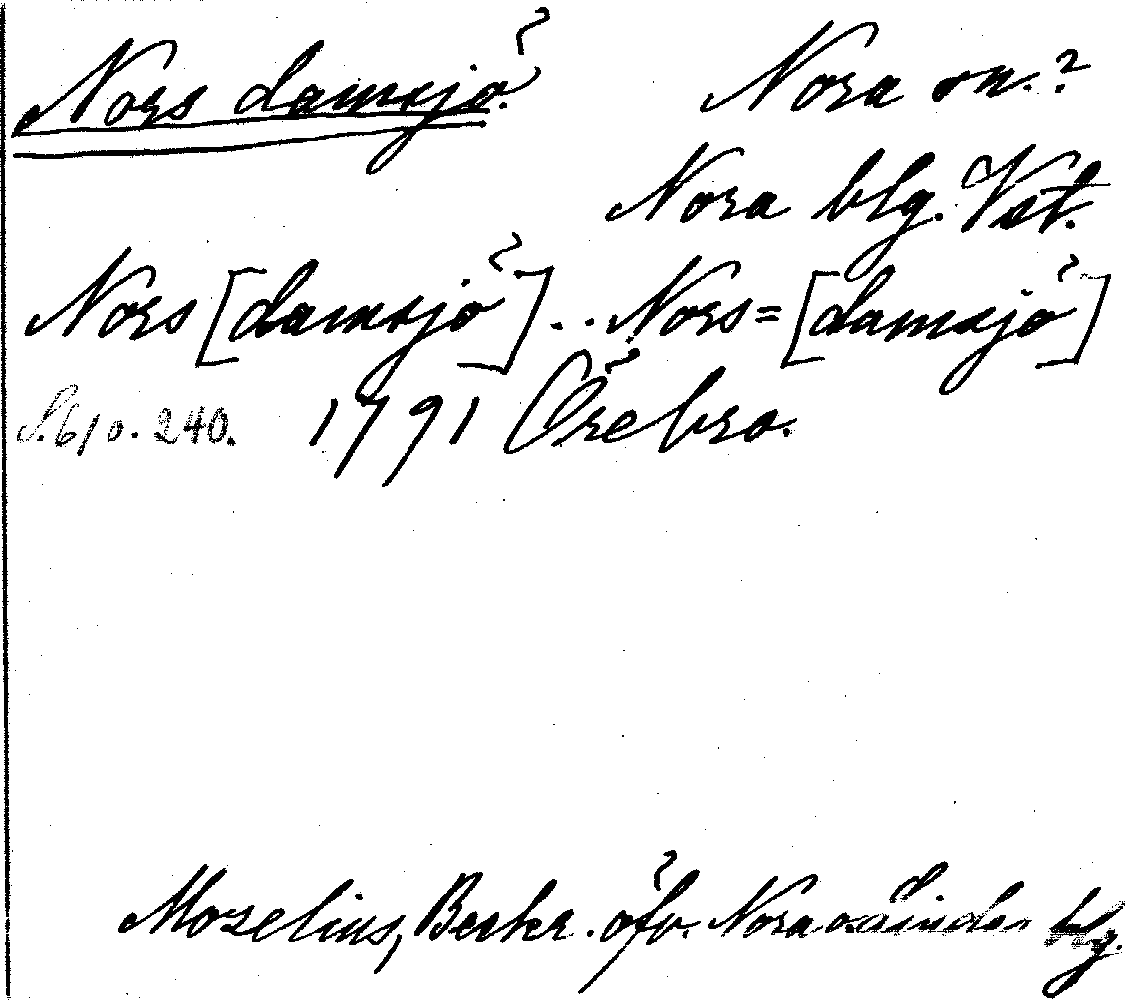 Nors damsjö.
Nora sn.?
Nora blg. Vstl.
Nors [damsjö] .. Nors= [damsjö]
S. 610. 240. 1791 Örebro.
Moselius, Beskr. öfv. Nora o. Linde blg.